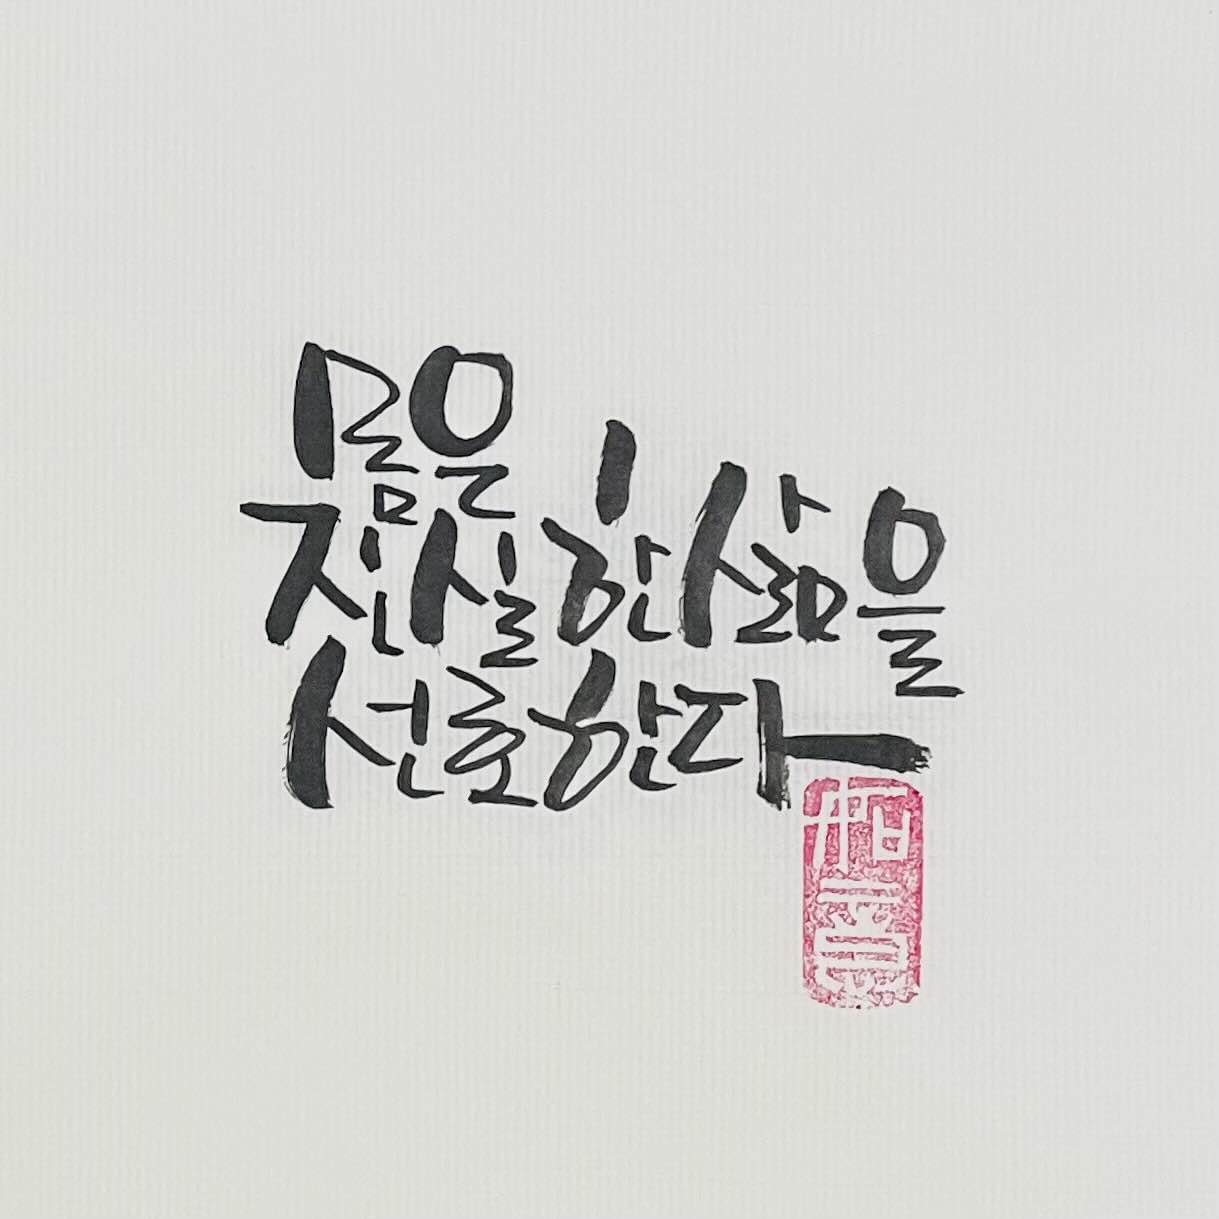 몸은
진실한 삶을
선호한다